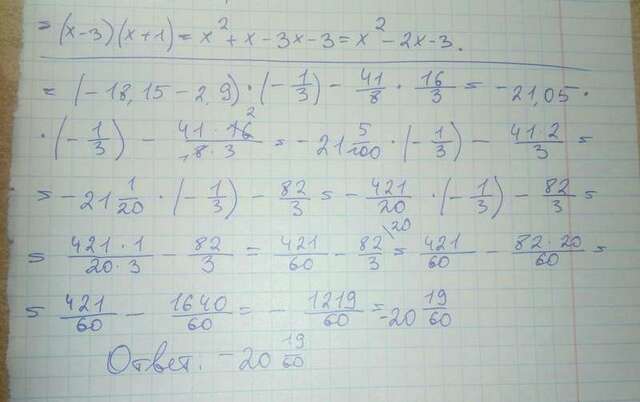 = (x-3)(x+1) = x² + x - 3x - 3 = x² - 2x - 3.
= (-18,15 - 2,9) · (-1/3) - 41/8 · 16/3 = -21,05 ·
· (-1/3) - 41·16²/₁8·3 = -21 5/100 · (-1/3) - 41·2/3 =
= -21 1/20 · (-1/3) - 82/3 = -421/20 · (-1/3) - 82/3 =
= 421·1/20·3 - 82/3 = 421/60 - 82/3 \20 = 421/60 - 82·20/60 =
= 421/60 - 1640/60 = - 1219/60 = -20 19/60
Ответ: -20 19/60